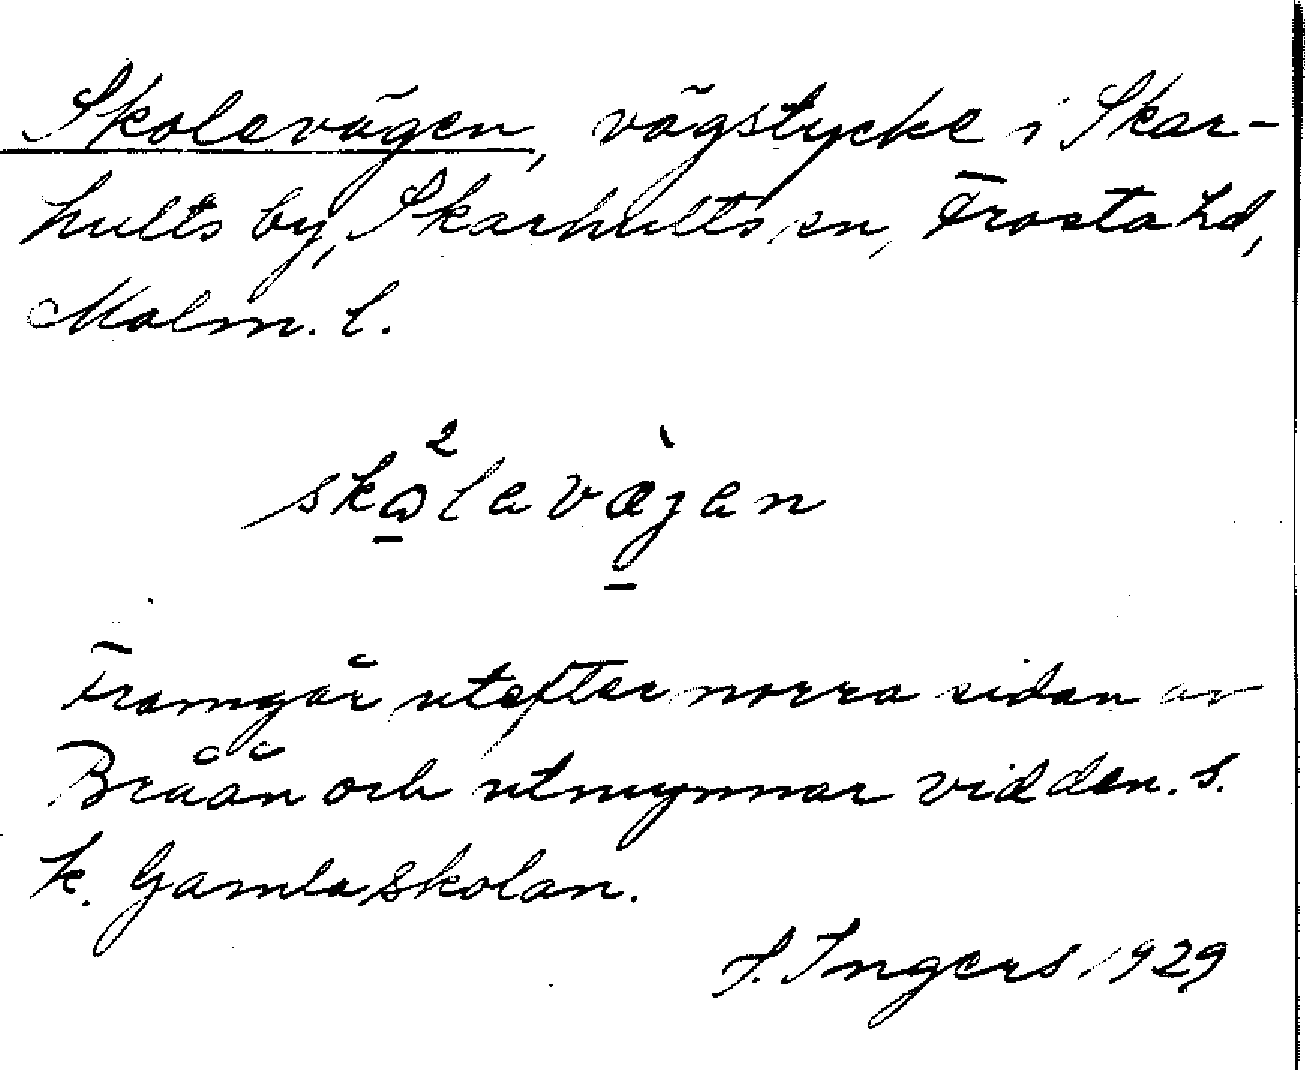 Skolevägen, vägstycke i Skar-
hults by, Skarhults sn, Frosta hd,
Malm. l.
skɷ̱²lavæ̀j̱an
Framgår utefter norra sidan av
Bråån och utmynnar vid den s.
k. Gamla skolan.
I. Ingers 1929